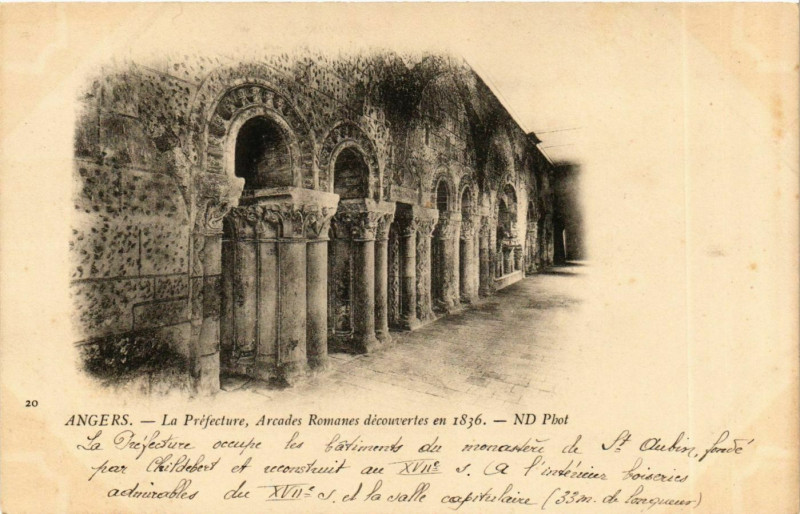 20
ANGERS. — La Préfecture, Arcades Romanes découvertes en 1836. — ND Phot
La Préfecture occupe les bâtiments du monastère de St Aubin, fondé
par Childebert et reconstruit au XVIIe s. (à l'intérieur boiseries
admirables du XVIIe s. et la salle capitulaire (33m. de longueur)